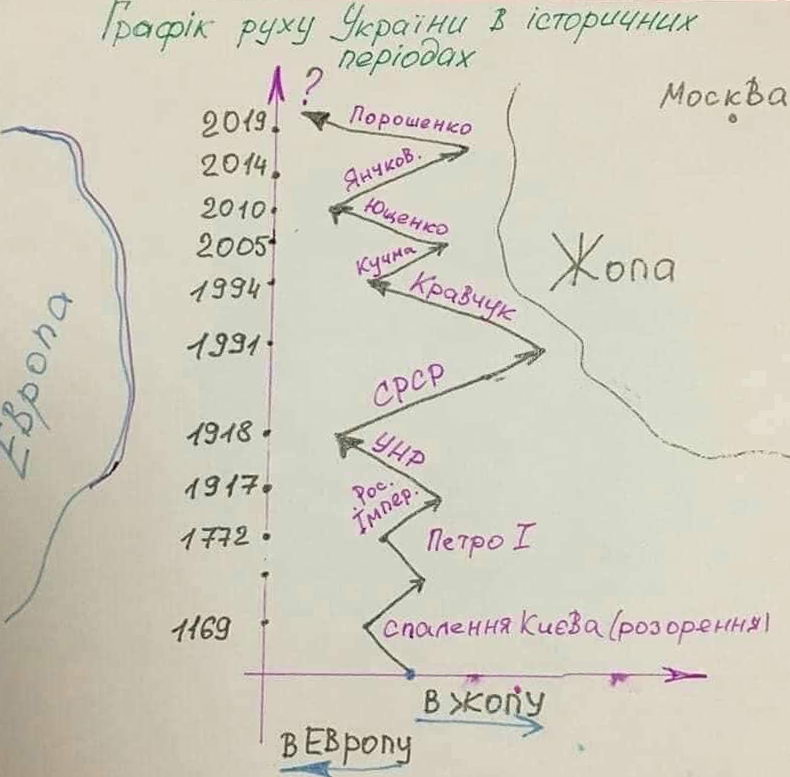 Графік руху України в історичних
періодах
Москва
?
2019
Порошенко
2014
Янчков.
2010
Ющенко
2005
Кучма
1994
Кравчук
Жопа
Европа
1991
СРСР
1918
УНР
1917
Рос.
Імпер.
1772
Петро І
1169
спалення Києва (розорення)
в жопу
в Европу